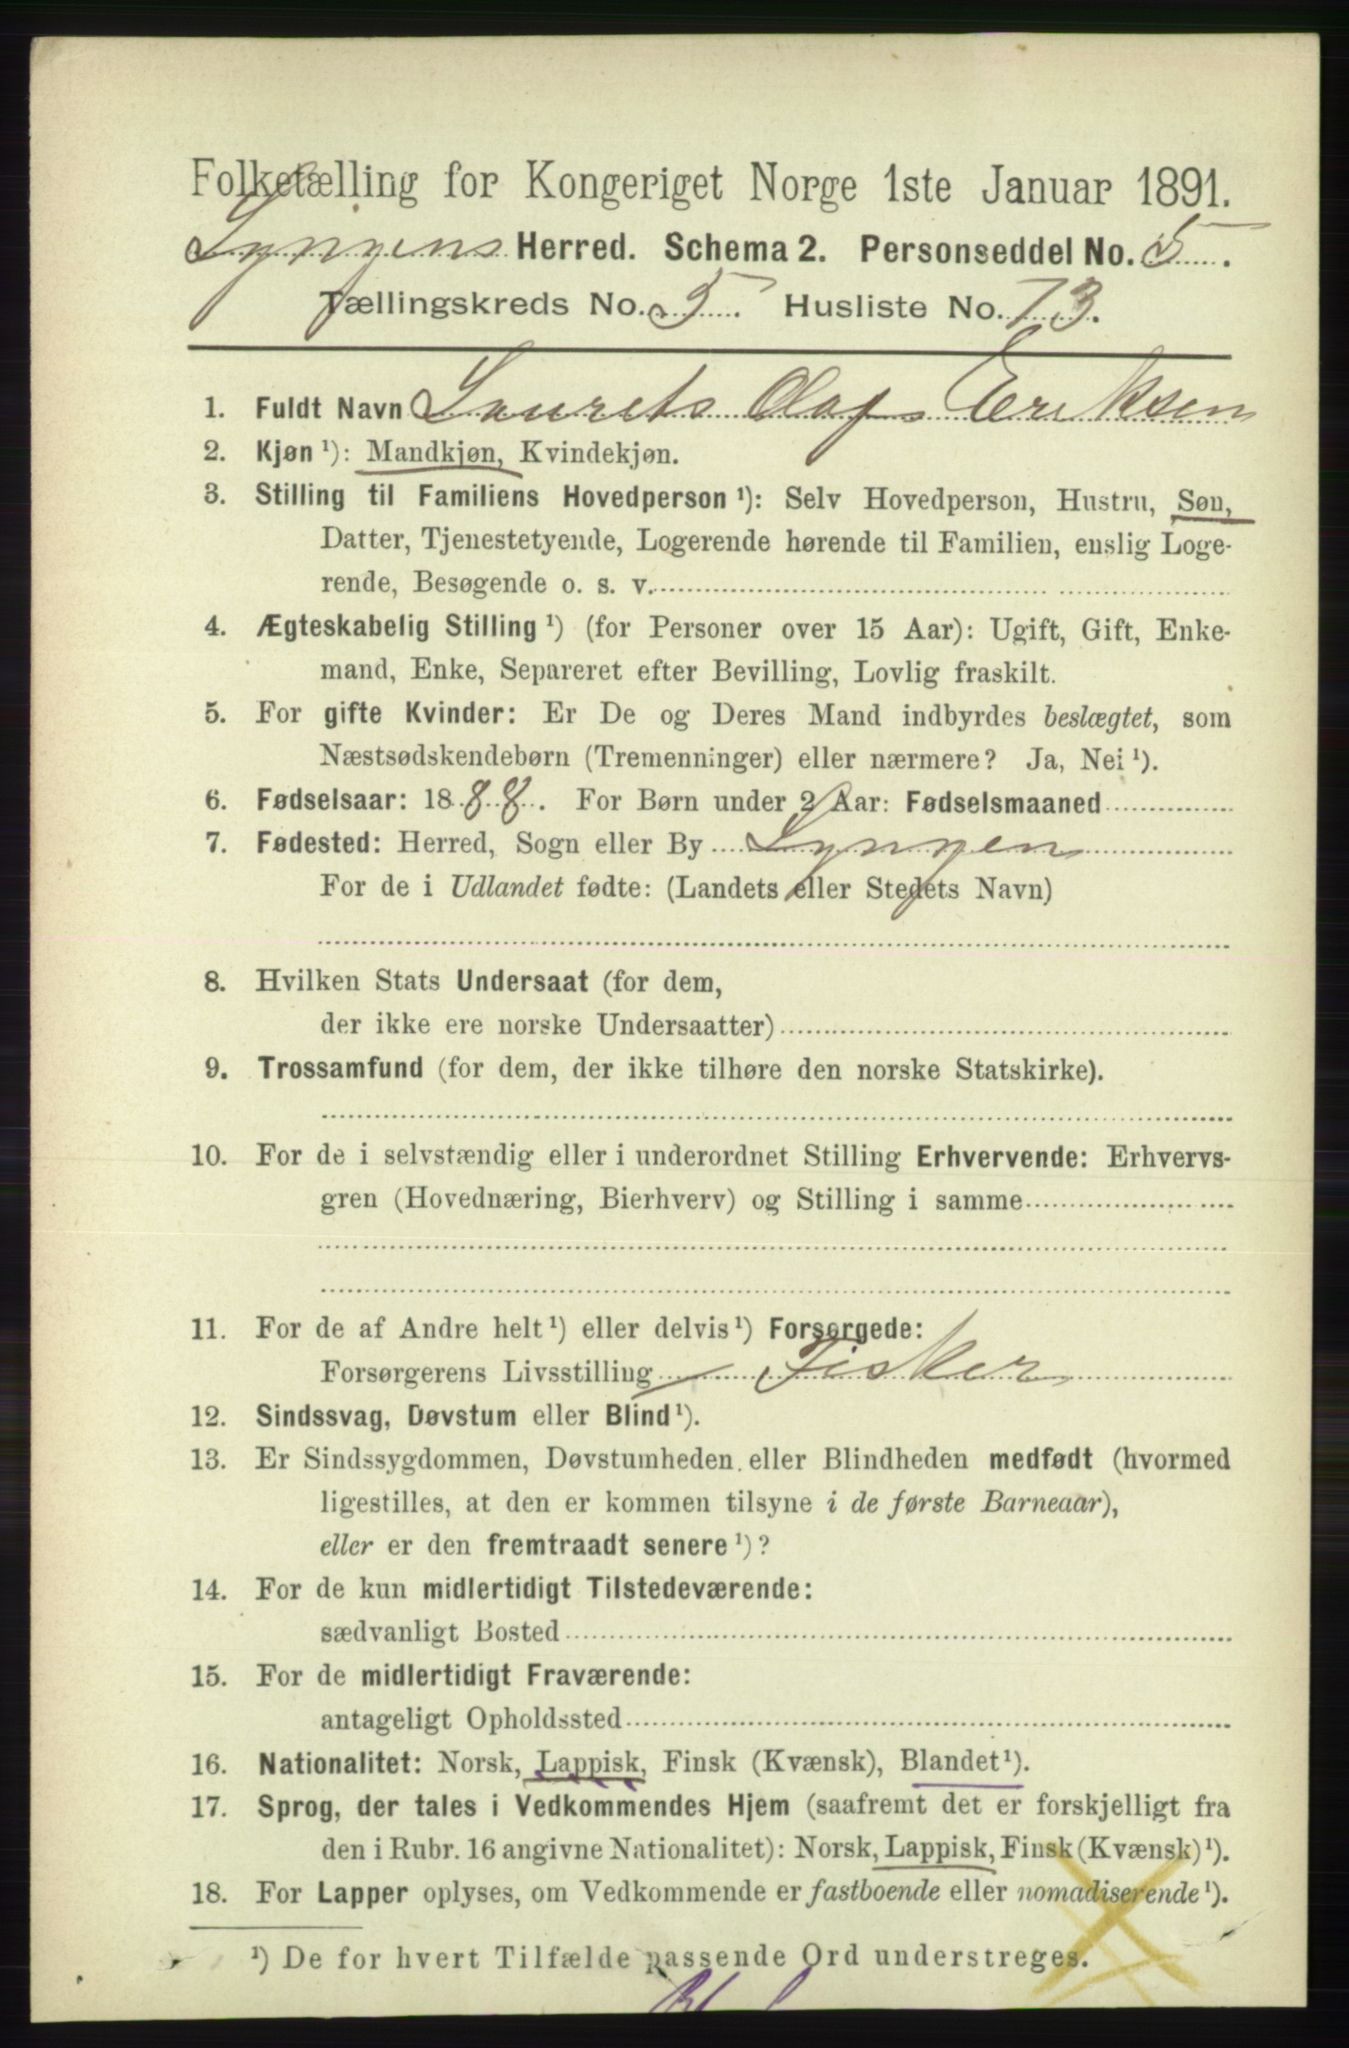 Folketælling for Kongeriget Norge 1ste Januar 1891.
Lyngens Herred. Schema 2. Personseddel No. 5.
Tællingskreds No. 5. Husliste No. 73.
1. Fuldt Navn Laurets Olaf Eriksen
2. Kjøn ¹): Mandkjøn, Kvindekjøn.
3. Stilling til Familiens Hovedperson ¹): Selv Hovedperson, Hustru, Søn,
Datter, Tjenestetyende, Logerende hørende til Familien, enslig Loge-
rende, Besøgende o. s. v.
4. Ægteskabelig Stilling ¹) (for Personer over 15 Aar): Ugift, Gift, Enke-
mand, Enke, Separeret efter Bevilling, Lovlig fraskilt.
5. For gifte Kvinder: Er De og Deres Mand indbyrdes beslægtet, som
Næstsødskendebørn (Tremenninger) eller nærmere? Ja, Nei ¹).
6. Fødselsaar: 1888. For Børn under 2 Aar: Fødselsmaaned
7. Fødested: Herred, Sogn eller By Lyngen
For de i Udlandet fødte: (Landets eller Stedets Navn)
8. Hvilken Stats Undersaat (for dem,
der ikke ere norske Undersaatter)
9. Trossamfund (for dem, der ikke tilhøre den norske Statskirke).
10. For de i selvstændig eller i underordnet Stilling Erhvervende: Erhvervs-
gren (Hovednæring, Bierhverv) og Stilling i samme
11. For de af Andre helt ¹) eller delvis ¹) Forsørgede:
Forsørgerens Livsstilling Fisker
12. Sindssvag, Døvstum eller Blind ¹).
13. Er Sindssygdommen, Døvstumheden eller Blindheden medfødt (hvormed
ligestilles, at den er kommen tilsyne i de første Barneaar),
eller er den fremtraadt senere ¹)?
14. For de kun midlertidigt Tilstedeværende:
sædvanligt Bosted
15. For de midlertidigt Fraværende:
antageligt Opholdssted
16. Nationalitet: Norsk, Lappisk, Finsk (Kvænsk), Blandet ¹).
17. Sprog, der tales i Vedkommendes Hjem (saafremt det er forskjelligt fra
den i Rubr. 16 angivne Nationalitet): Norsk, Lappisk, Finsk (Kvænsk) ¹).
18. For Lapper oplyses, om Vedkommende er fastboende eller nomadiserende ¹).
¹) De for hvert Tilfælde passende Ord understreges.